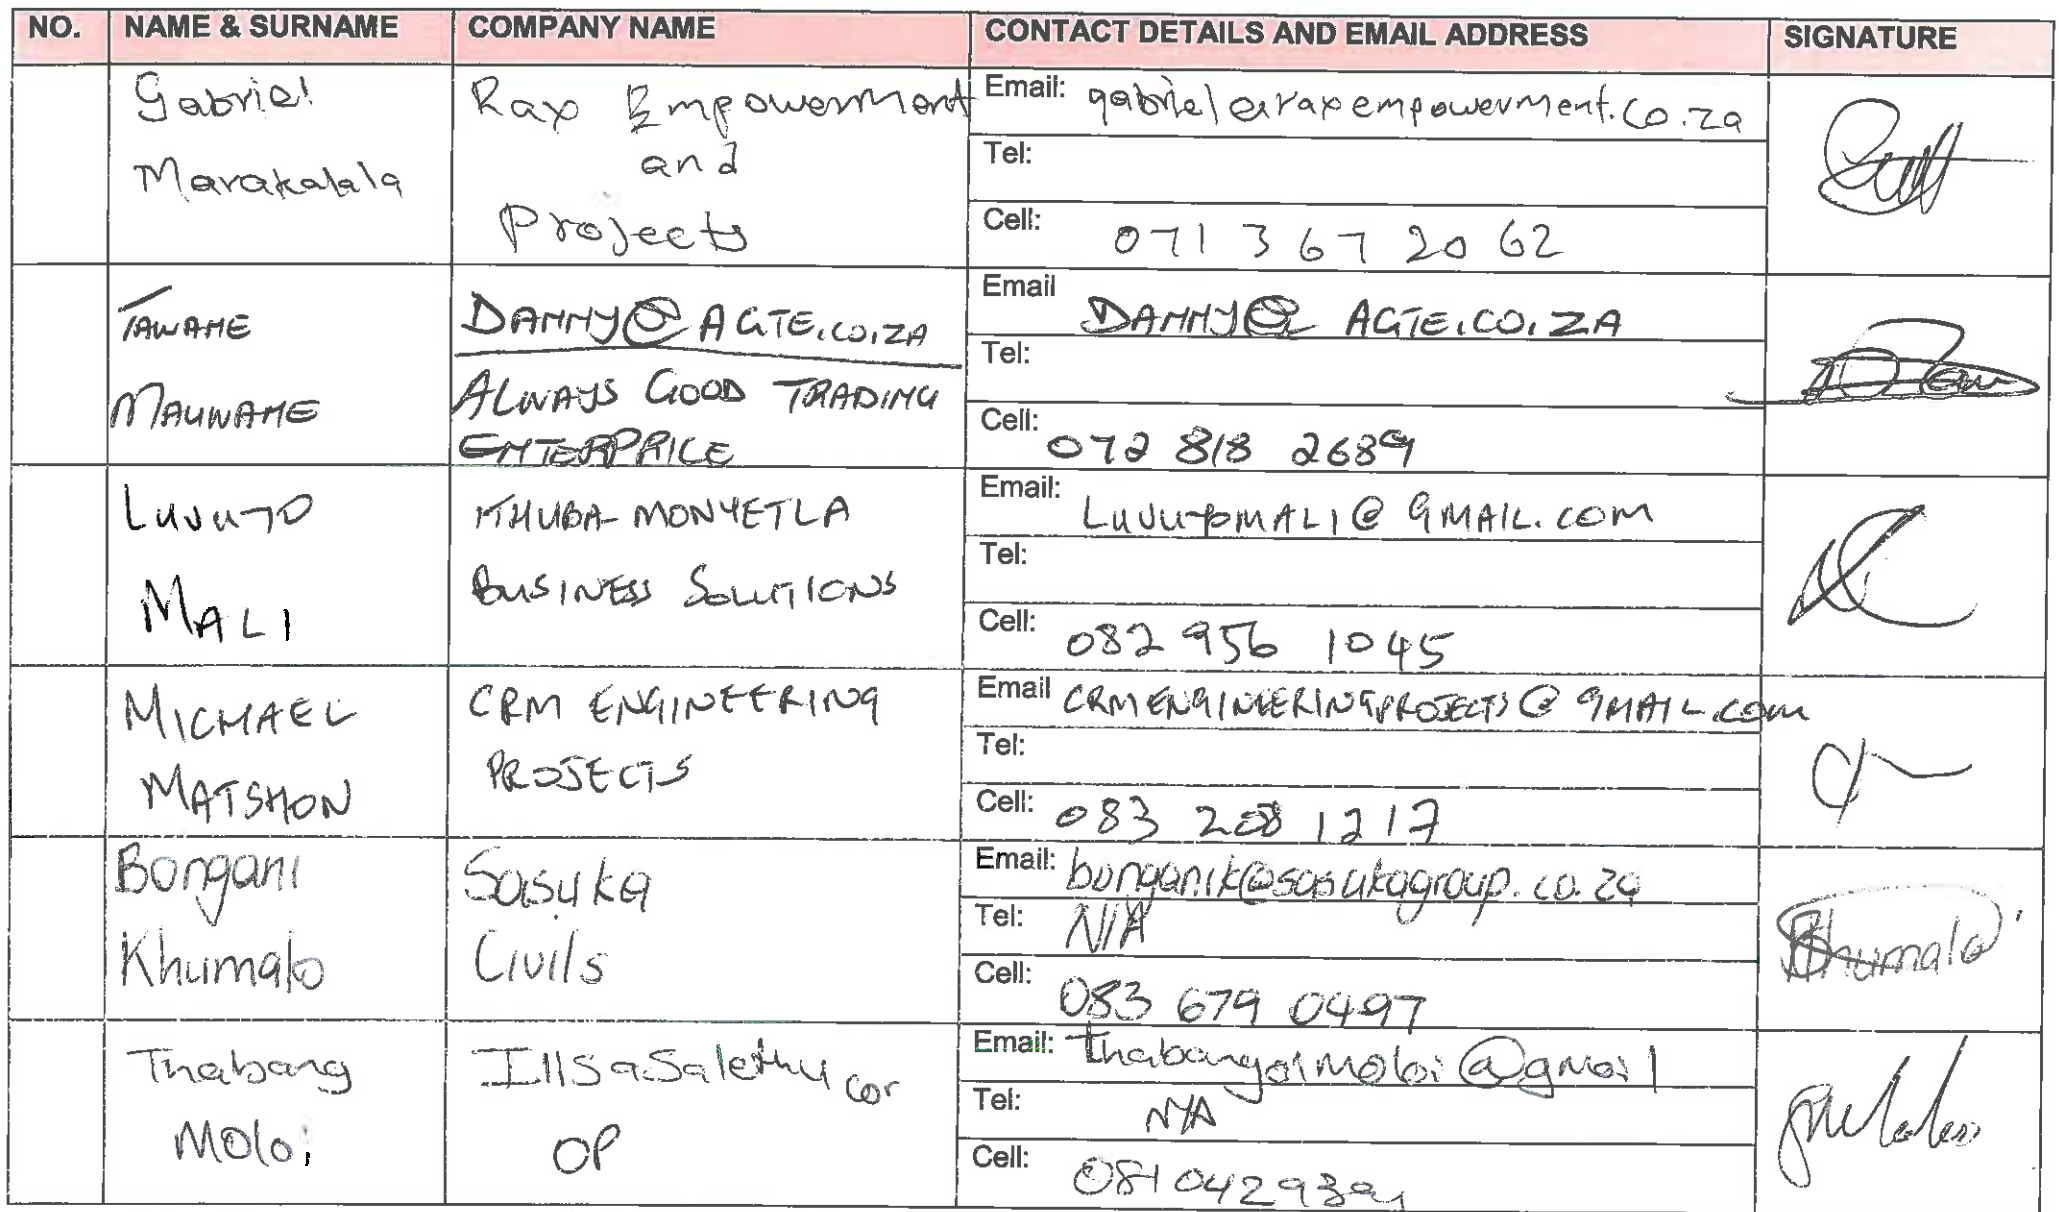 NO. NAME & SURNAME COMPANY NAME CONTACT DETAILS AND EMAIL ADDRESS SIGNATURE
Gabriel
Marakalala
Rax Empowerment
and
Projects
Email: gabriel@raxempowerment.co.za
Tel:
Cell: 071 367 20 62
TAWANE
MAUWANE
DANNY@AGTE.CO.ZA
ALWAYS GOOD TRADING
ENTERPRICE
Email DANNY@AGTE.CO.ZA
Tel:
Cell: 072 818 2689
LUVUYO
MALI
ITHUBA-MONYETLA
BUSINESS SOLUTIONS
Email: LUVUYOMALI@GMAIL.COM
Tel:
Cell: 082 956 1045
MICHAEL
MATSHON
CRM ENGINEERING
PROJECTS
Email CRMENGINEERINGPROJECTS@GMAIL.COM
Tel:
Cell: 083 208 1217
Bongani
Khumalo
Sasuka
Civils
Email: bonganik@sasukagroup.co.za
Tel: N/A
Cell: 083 679 0497
Khumalo
Thabang
Moloi
cor
OP
Email:
Tel: N/A
Cell: